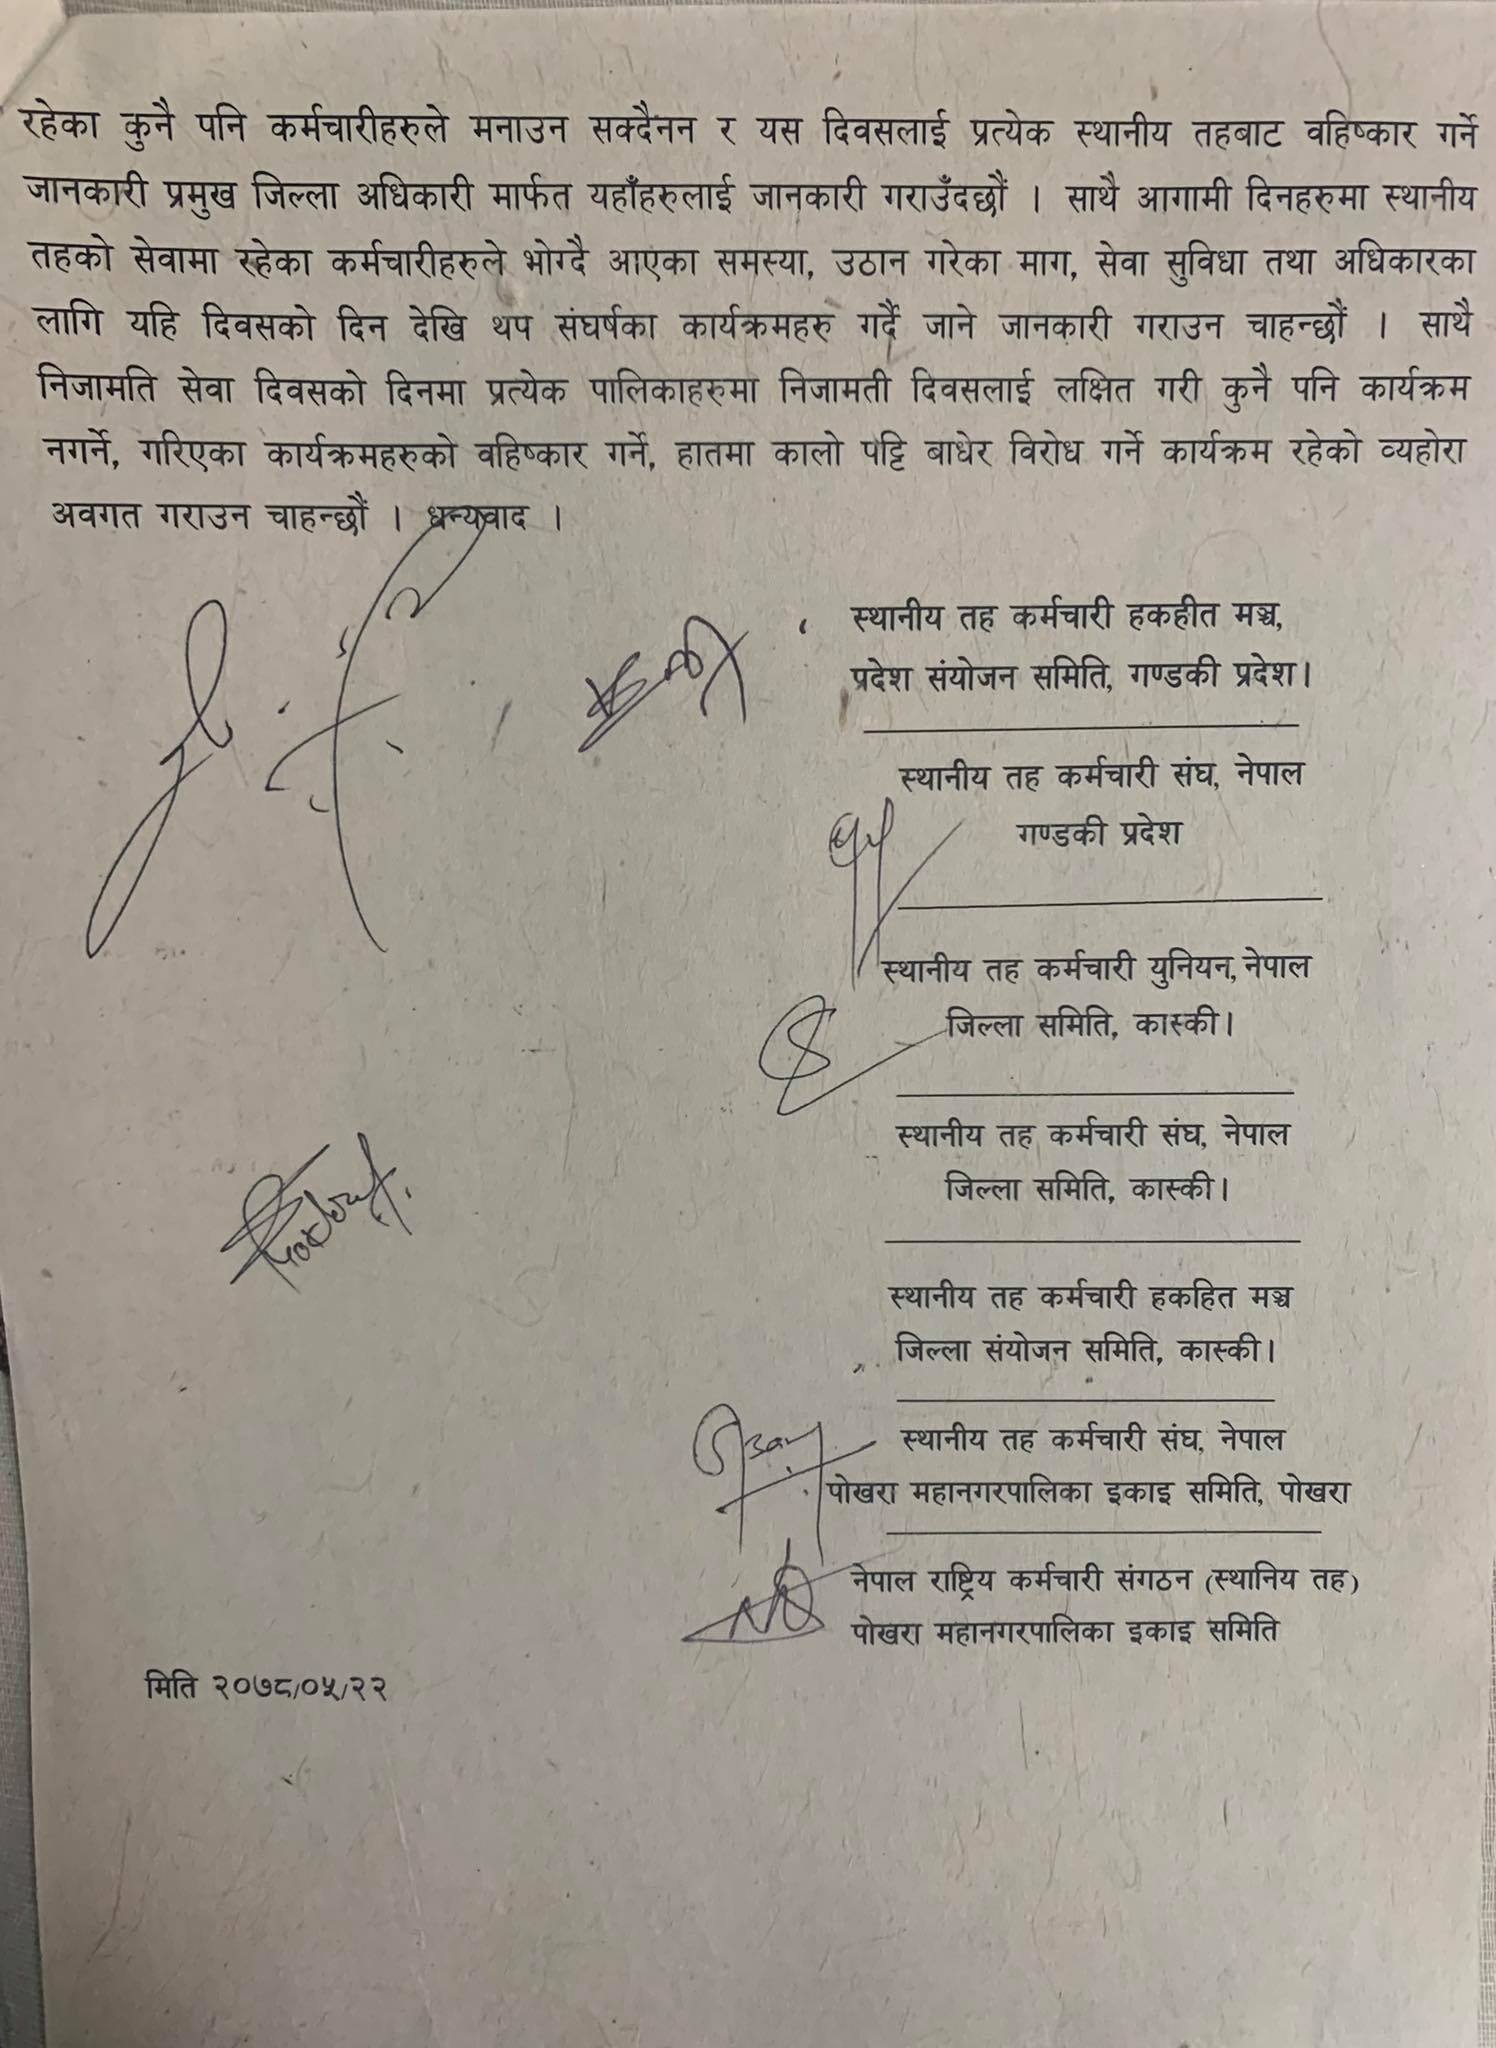 रहेका कुनै पनि कर्मचारीहरुले मनाउन सक्दैनन र यस दिवसलाई प्रत्येक स्थानीय तहबाट वहिष्कार गर्ने
जानकारी प्रमुख जिल्ला अधिकारी मार्फत यहाँहरुलाई जानकारी गराउँदछौं । साथै आगामी दिनहरुमा स्थानीय
तहको सेवामा रहेका कर्मचारीहरुले भोग्दै आएका समस्या, उठान गरेका माग, सेवा सुविधा तथा अधिकारका
लागि यहि दिवसको दिन देखि थप संघर्षका कार्यक्रमहरु गर्दै जाने जानकारी गराउन चाहन्छौं । साथै
निजामति सेवा दिवसको दिनमा प्रत्येक पालिकाहरुमा निजामती दिवसलाई लक्षित गरी कुनै पनि कार्यक्रम
नगर्ने, गरिएका कार्यक्रमहरुको वहिष्कार गर्ने, हातमा कालो पट्टि बाधेर विरोध गर्ने कार्यक्रम रहेको व्यहोरा
अवगत गराउन चाहन्छौं । धन्यवाद ।
स्थानीय तह कर्मचारी हकहीत मञ्च,
प्रदेश संयोजन समिति, गण्डकी प्रदेश।
स्थानीय तह कर्मचारी संघ, नेपाल
गण्डकी प्रदेश
स्थानीय तह कर्मचारी युनियन, नेपाल
जिल्ला समिति, कास्की।
स्थानीय तह कर्मचारी संघ, नेपाल
जिल्ला समिति, कास्की।
स्थानीय तह कर्मचारी हकहित मञ्च
जिल्ला संयोजन समिति, कास्की।
स्थानीय तह कर्मचारी संघ, नेपाल
पोखरा महानगरपालिका इकाइ समिति, पोखरा
नेपाल राष्ट्रिय कर्मचारी संगठन (स्थानिय तह)
पोखरा महानगरपालिका इकाइ समिति
मिति २०७८/०५/२२